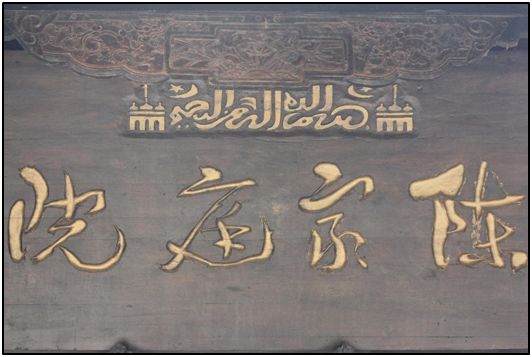 بسم الله الرحمن الرحيم
陈家庭院